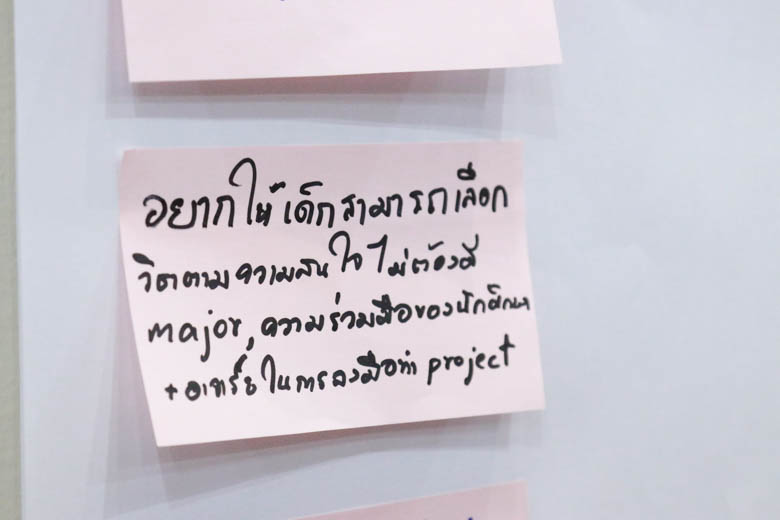 อยากให้เด็กสามารถเลือก
วิชาตามความสนใจ ไม่ต้องมี
major, ความร่วมมือของนักศึกษา
+ อาจารย์ ในการลงมือทำ project